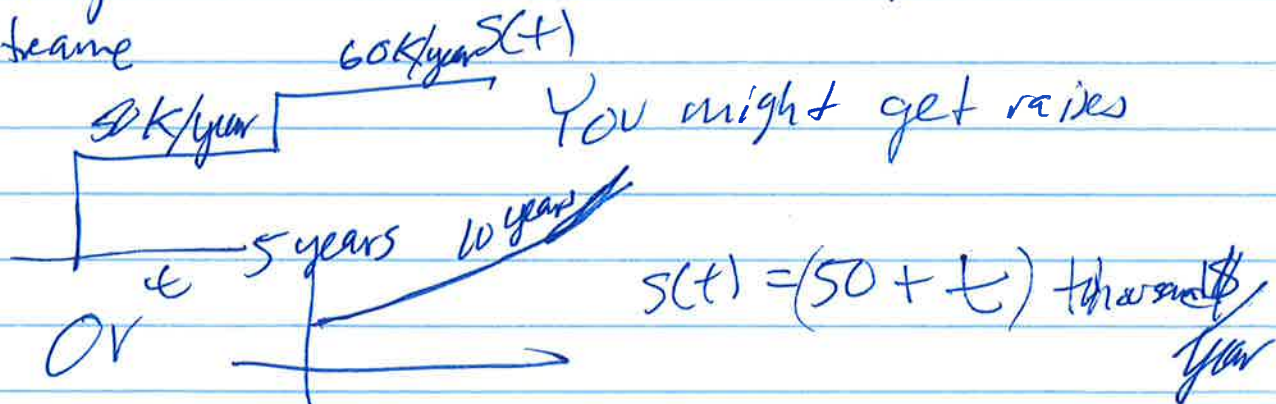 60K/year S(t)
50K/year
You might get raises
5 years
10 years
t
s(t) = (50 + t) thousand $/year
Or